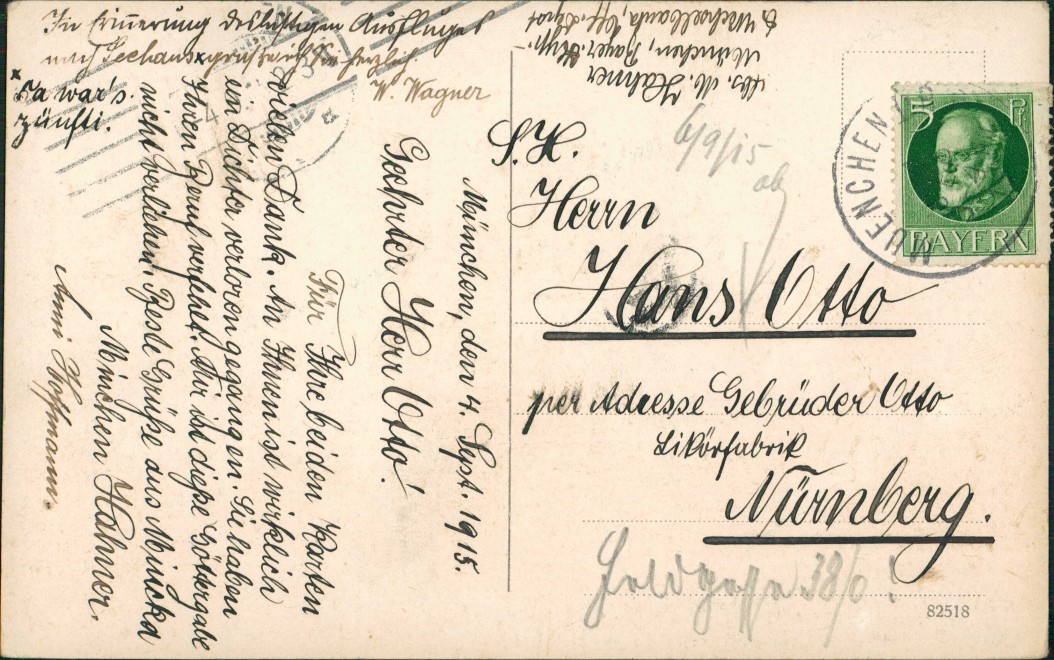 Zur Erinnerung des lustigen Ausfluges
nach Seehaus × grüßen Sie herzlich
W. Wagner
× Da war's
zünfti.
München, den 4. Sept. 1915.
Geehrter Herr Otto!
Für Ihre beiden Karten
vielen Dank. An Ihnen ist wirklich
ein Dichter verloren gegangen. Sie haben
Ihren Beruf verfehlt. Mir ist dieße Göttergabe
nicht verliehen. Beste Grüße aus
München Hahner.
Anni Hoffmann.
Abs. M. Hahner
München, Bayer. Hyp.-
& Wechselbank,
6/9/15
S. H.
Herrn
Hans Otto
per Adresse Gebrüder Otto
Likörfabrik
Nürnberg.
Feldgasse 38/0!
82518
5 Pf
BAYERN
MUENCHEN